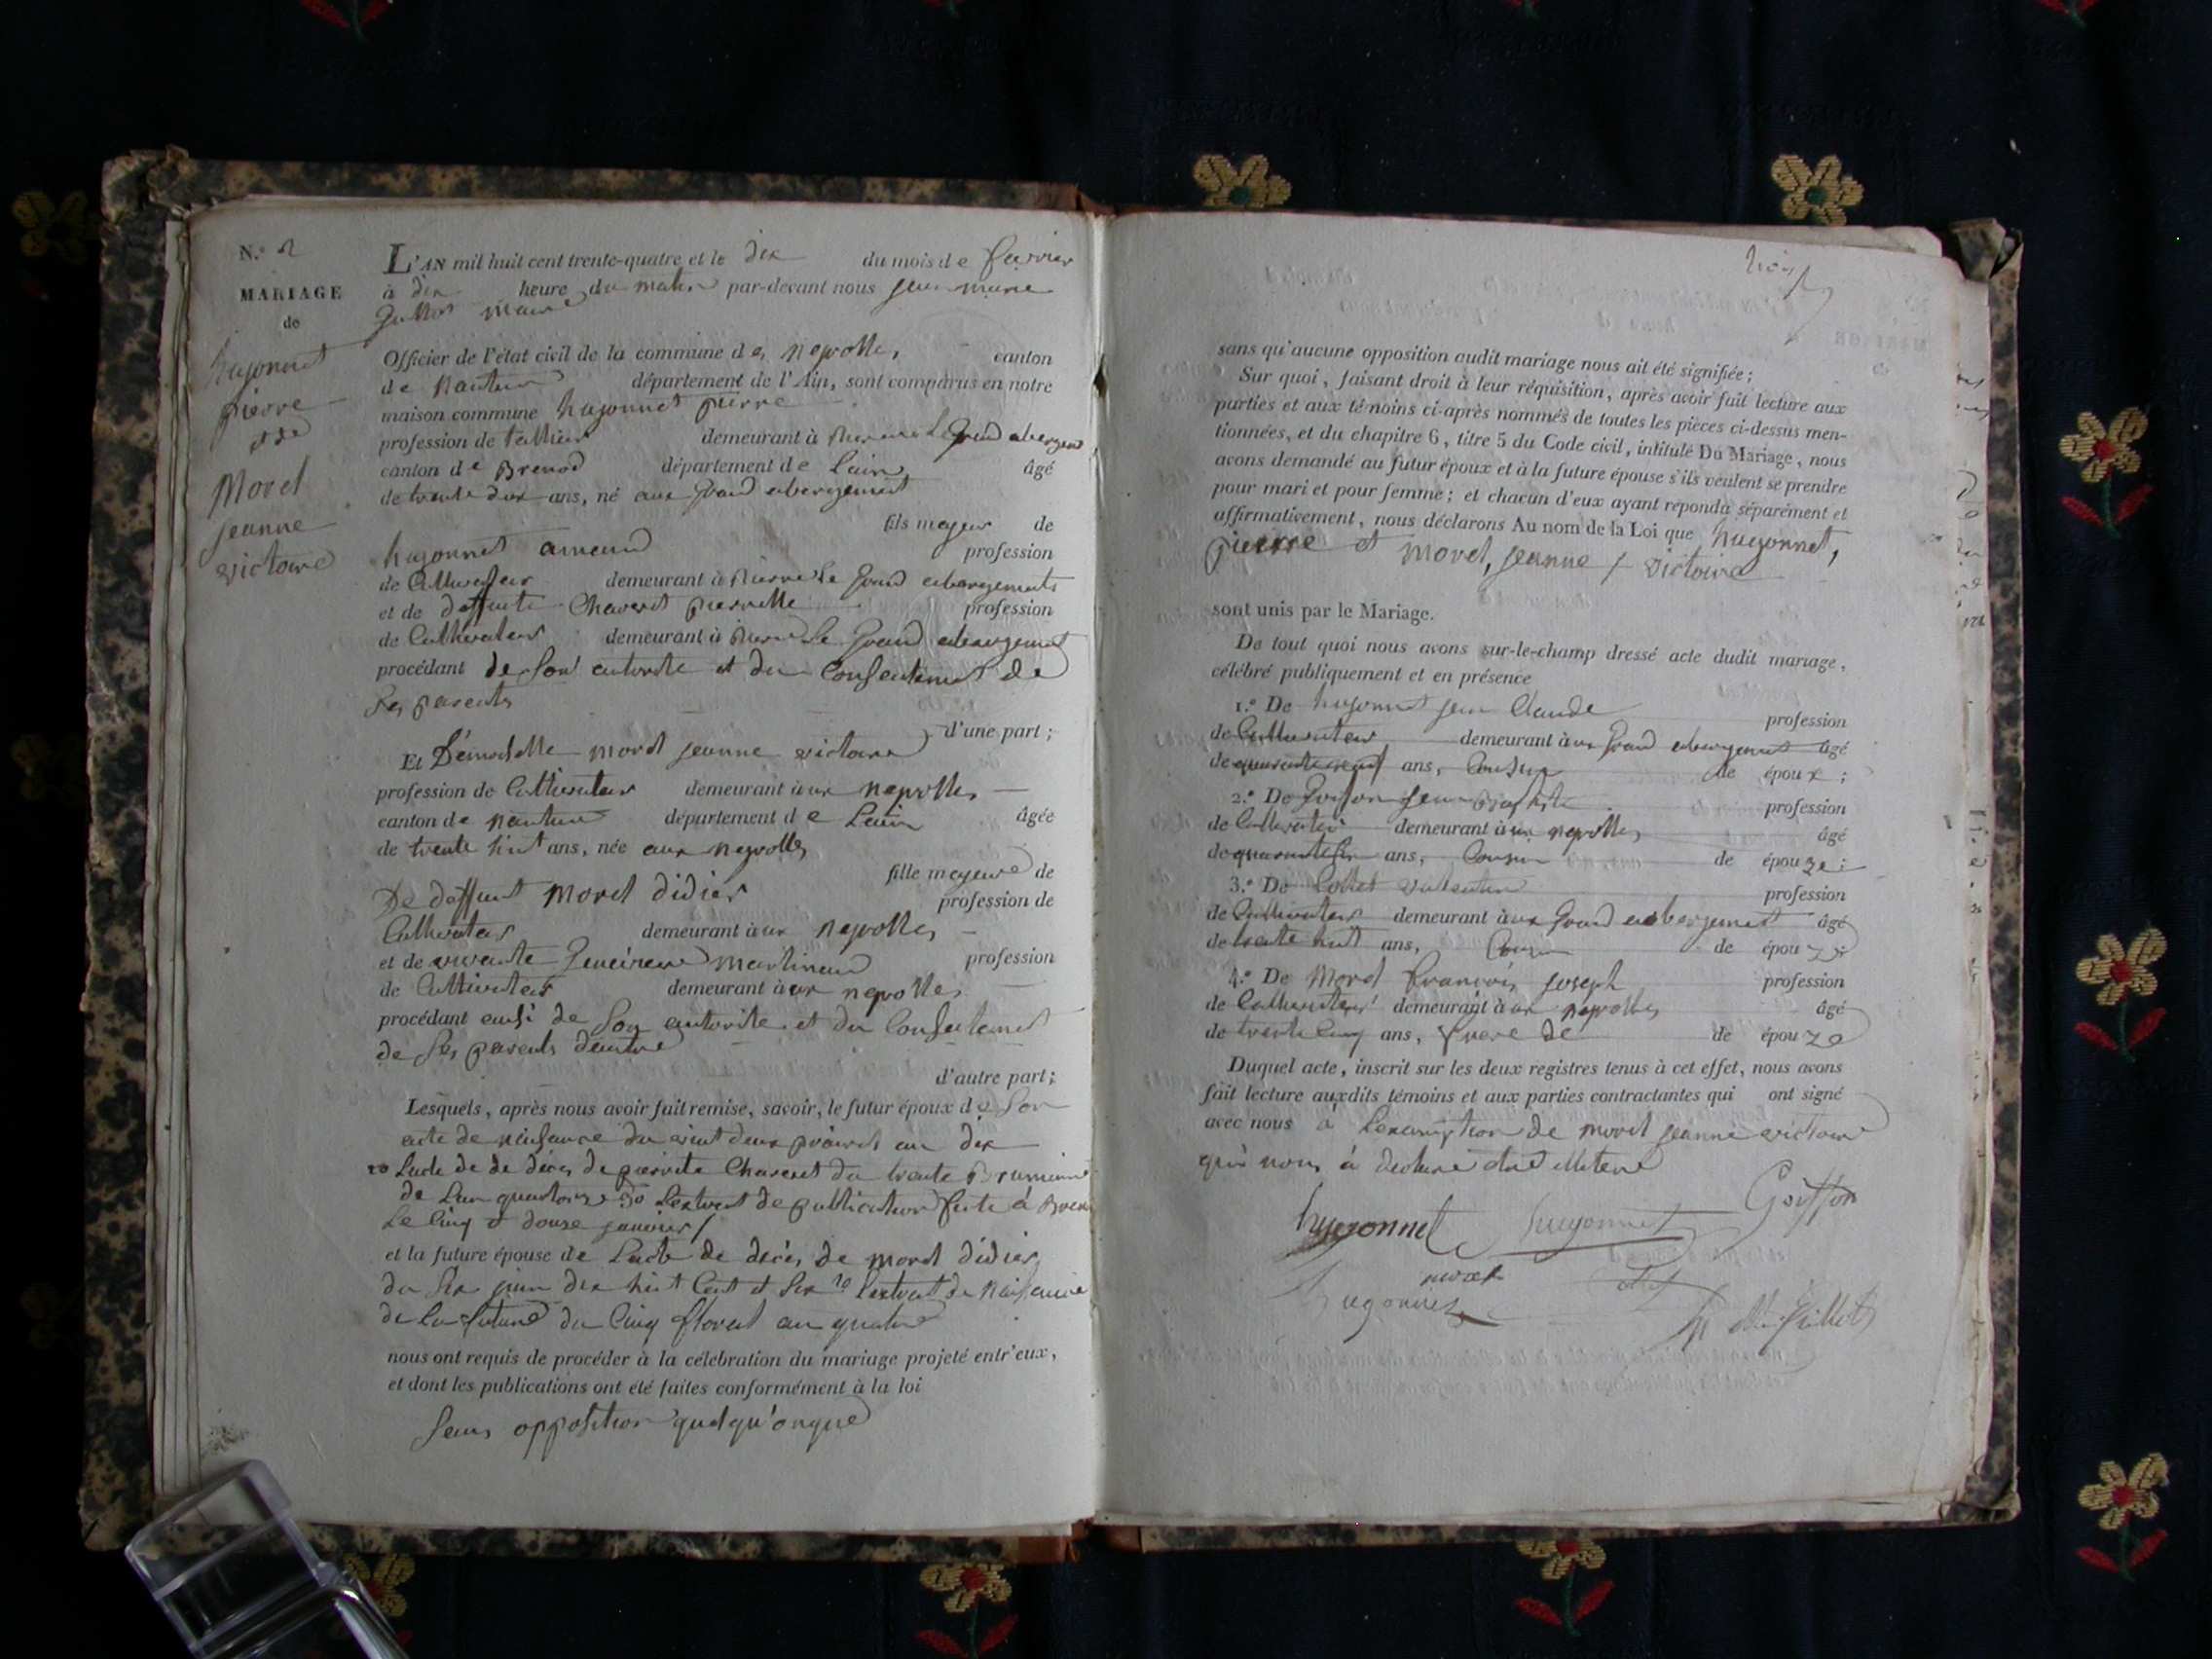 N.º 2
MARIAGE
de
hugonnet
pierre
et de
Morel
jeanne
victoire
L'AN mil huit cent trente-quatre et le dix du mois de fevrier
à dix heure du matin par-devant nous jean marie
maire
Officier de l'état civil de la commune des neyrolles canton
de nantua département de l'Ain, sont comparus en notre
maison commune hugonnet pierre
profession de demeurant à le grand abergement
canton de Brenod département de Lain âgé
de trente deux ans, né aux grand abergement
fils mageur de
hugonnet
profession
de Cultivateur demeurant à le grand abergement
et de deffunte Chavent pierrette profession
de Cultivateur demeurant à le grand abergement
procédant de son autorite et du Consentement de
ses parents
d'une part ;
Et Démoiselle morel jeanne victoire
profession de Cultivateur demeurant à ux neyrolles
canton de nantua département de Lain âgée
de trente huit ans, née aux neyrolles
fille mageure de
De deffunt Morel didier profession de
Cultivateur demeurant à ux neyrolles
et de vivante martinand profession
de Cultivateur demeurant à ux neyrolles
procédant ausi de son autorite et du Consentement
de ses parents d'autre
d'autre part ;
Lesquels, après nous avoir fait remise, savoir, le futur époux de son
acte de naissance du vint deux prairial an dix
2º Lacte de de déces de pierrette Chavent du trente Brumaire
de Lan quatorze 3º Lextrait de publication faite à
Le Cinq et douze janvier /
et la future épouse de Lacte de décès de morel didier
du six juin dix huit Cent et six 2º Lextrait de naissance
de La future du Cinq floreal an quatre
nous ont requis de procéder à la célébration du mariage projeté entr'eux,
et dont les publications ont été faites conformément à la loi
sans opposition quelqu'onque
sans qu'aucune opposition audit mariage nous ait été signifiée ;
Sur quoi, faisant droit à leur réquisition, après avoir fait lecture aux
parties et aux témoins ci-après nommés de toutes les pièces ci-dessus men-
tionnées, et du chapitre 6, titre 5 du Code civil, intitulé Du Mariage, nous
avons demandé au futur époux et à la future épouse s'ils veulent se prendre
pour mari et pour femme ; et chacun d'eux ayant répondu séparément et
affirmativement, nous déclarons Au nom de la Loi que hugonnet,
pierre et morel, jeanne / victoire
sont unis par le Mariage.
De tout quoi nous avons sur-le-champ dressé acte dudit mariage,
célébré publiquement et en présence
1.º De hugonnet jean Claude profession
de Cultivateur demeurant à ux grand abergement âgé
de quarante neuf ans, Cousin de époux ;
2.º De goiffon jean Baptiste profession
de Cultivateur demeurant à ux neyrolles âgé
de quarante six ans, Cousin de épouze ;
3.º De Collet valentin profession
de Cultivateur demeurant à ux grand abergement âgé
de trente huit ans, Cousin de épouz
4.º De Morel francois joseph profession
de Cultivateur demeurant à ux neyrolles âgé
de trente Cinq ans, frere de de épouze
Duquel acte, inscrit sur les deux registres tenus à cet effet, nous avons
fait lecture auxdits témoins et aux parties contractantes qui ont signé
avec nous à Lexcemption de morel jeanne victoire
qui nous à declare
hugonnet hugonnet Goiffon
morel
hugonnet